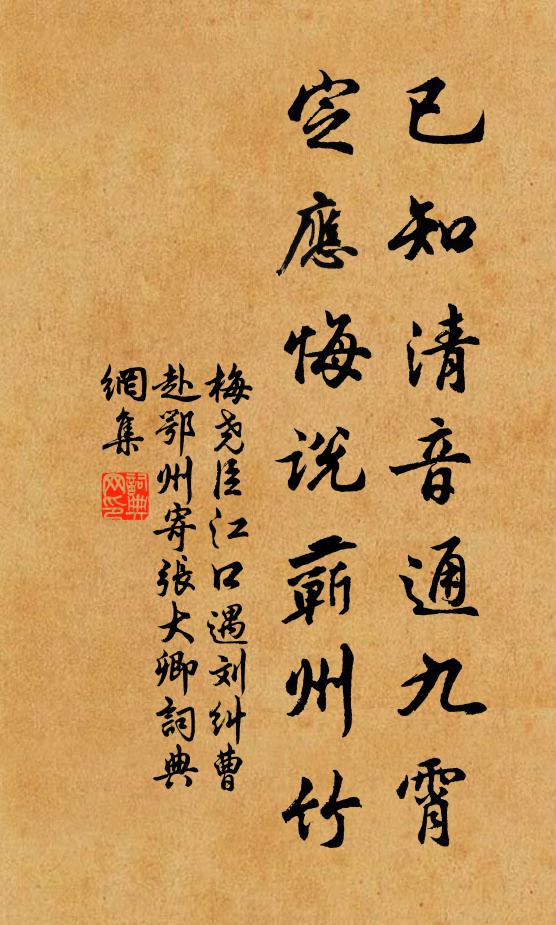 已知清音通九霄
定应悔说蕲州竹
梅尧臣江口遇刘纠曹
赴鄂州寄张大卿词典
網集
詞典
网印